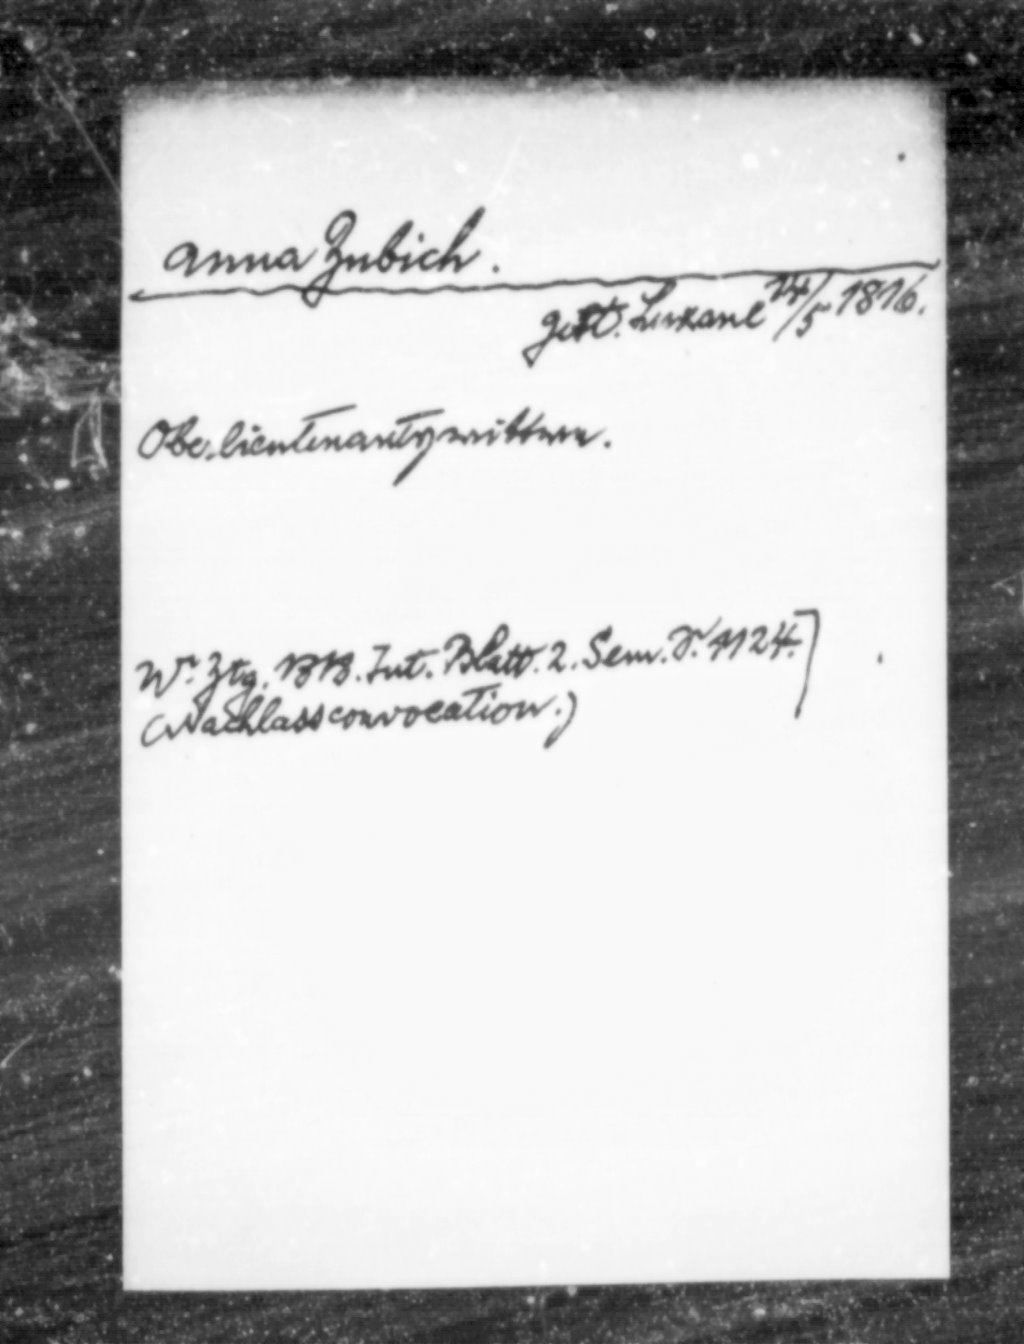 Anna Zubich.
gest. Luzane 14/5 1816.
Oberlieutenantswittwe.
Wr. Ztg. Int. Blatt. 2. Sem. S. 1124.]
(Nachlassconvocation.)